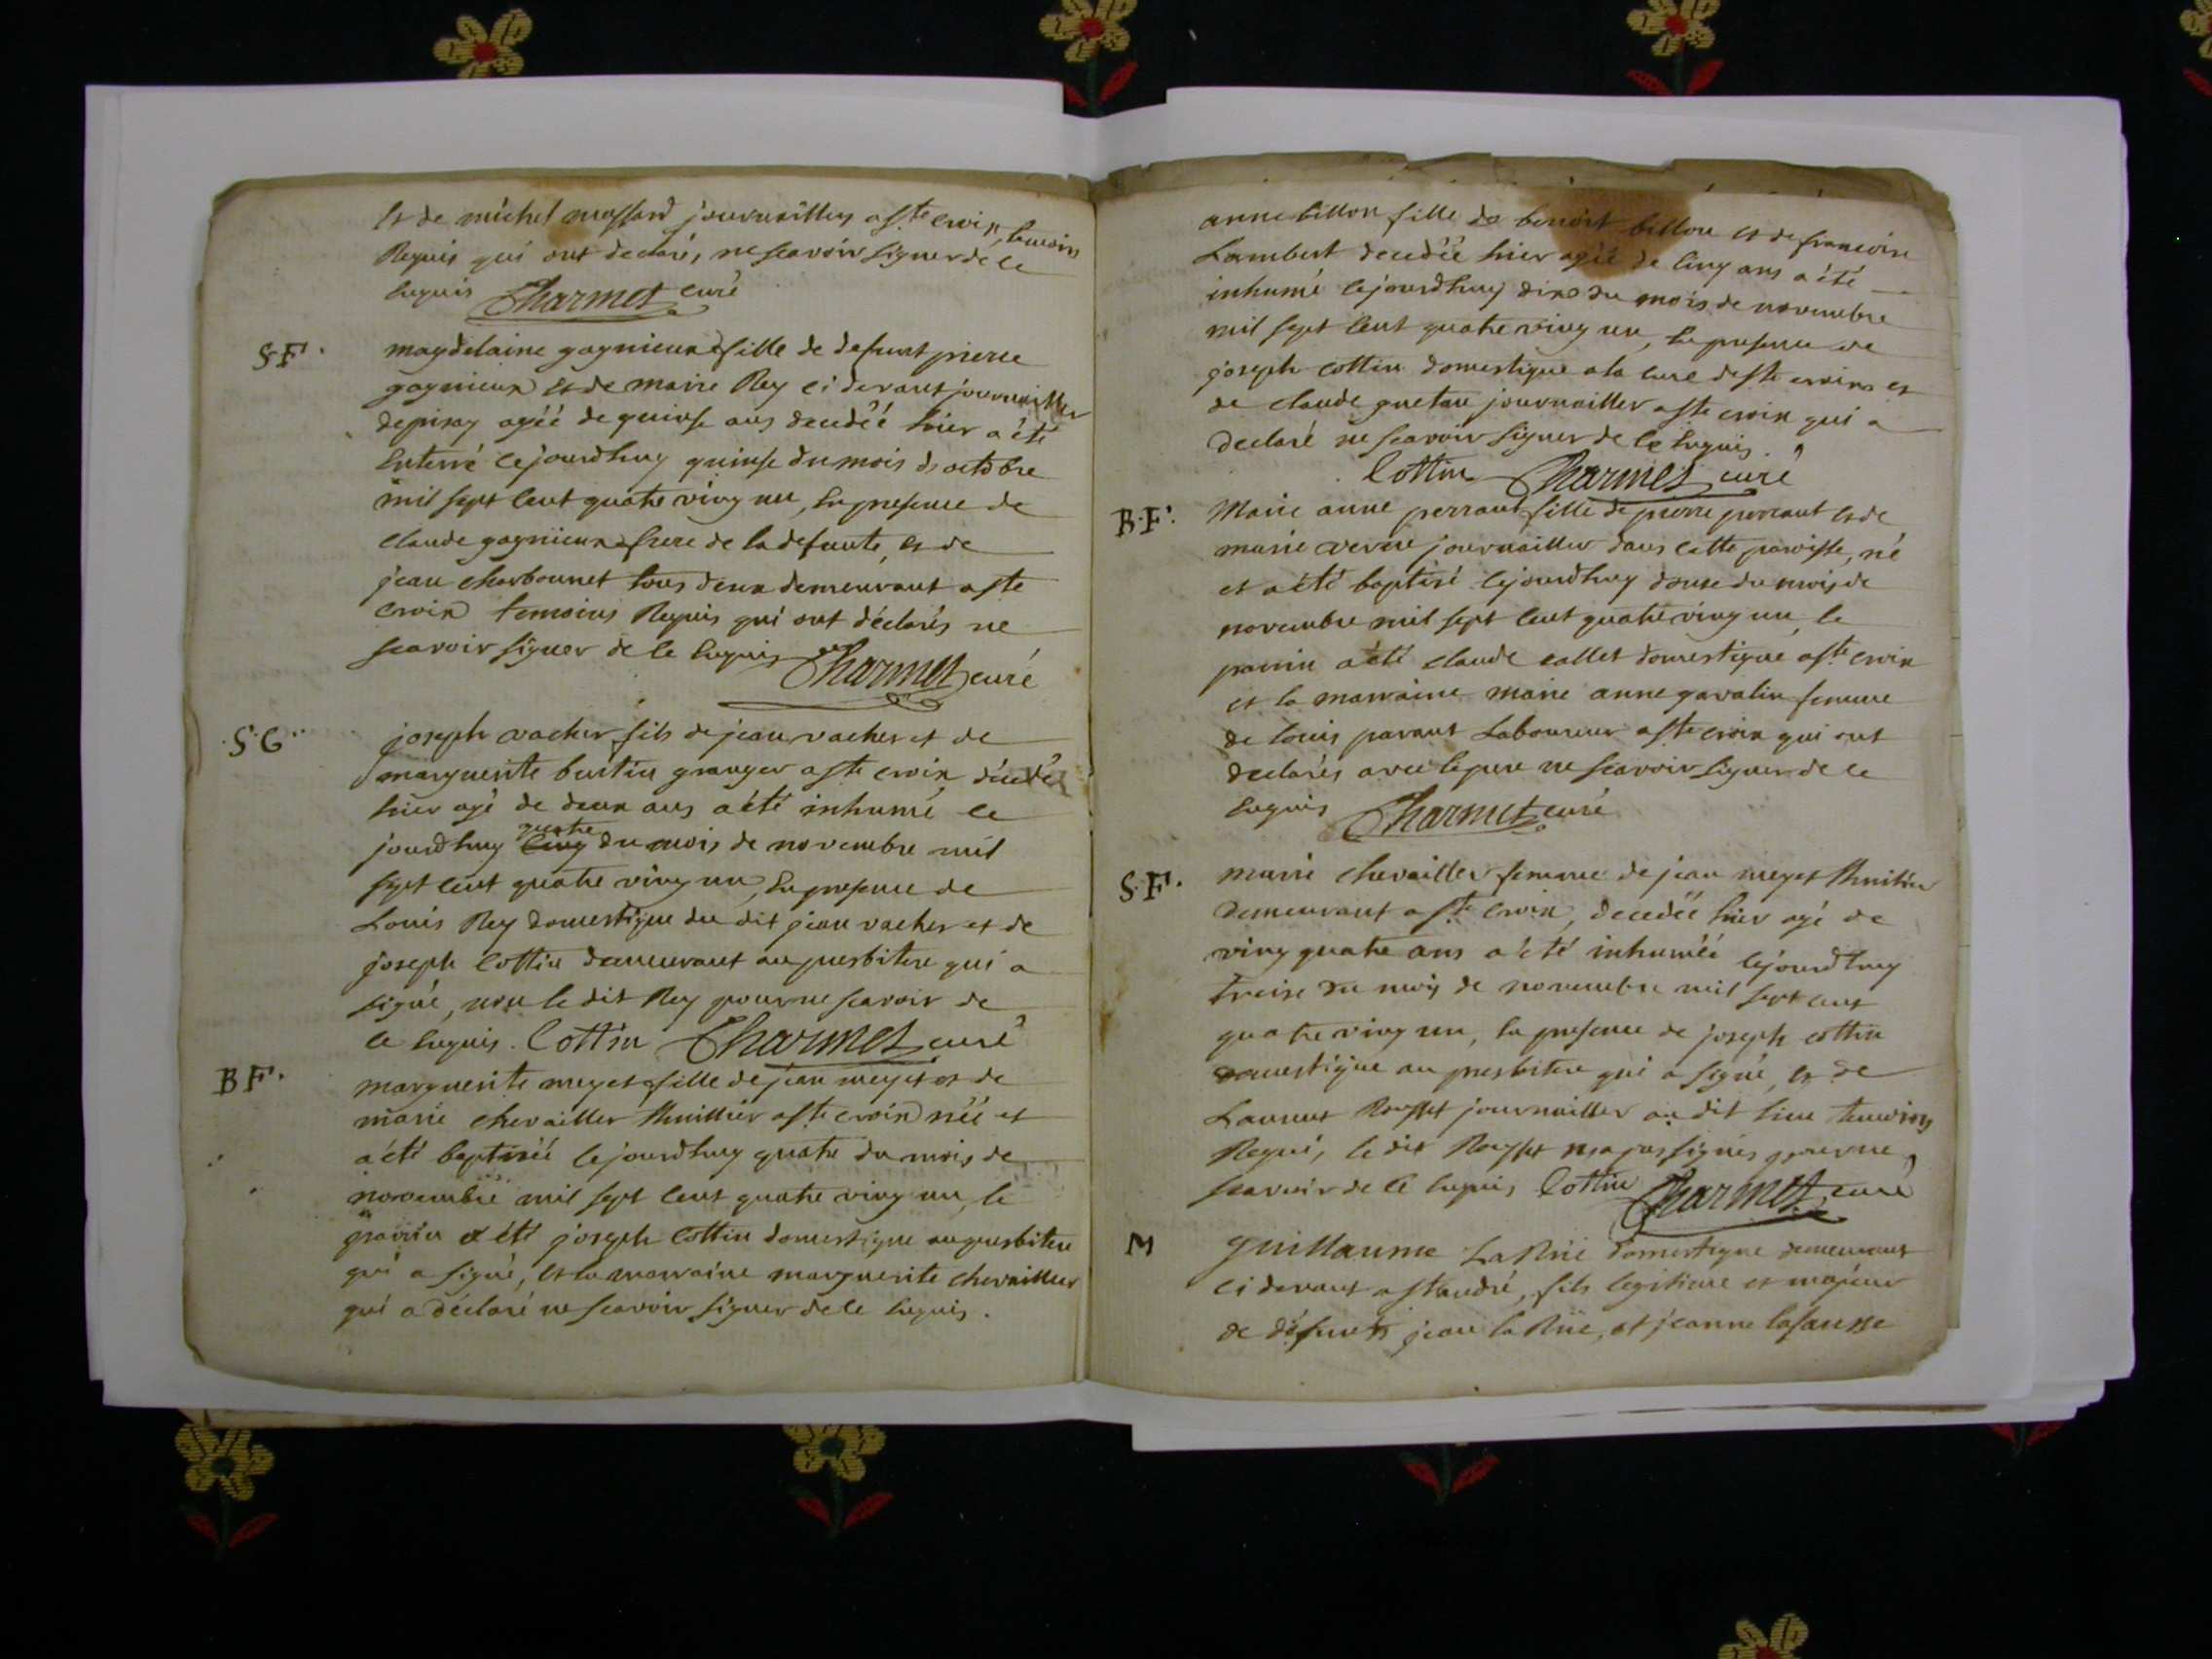 et de michel massard journaillier a ste croix, temoins
Requis qui ont declarés ne scavoir signer de ce
enquis Charmet curé
S.F. magdelaine gagnieux fille de defunt pierre
gagnieux et de marie Rey ci devant journaillier
de pisay agéé de quinse ans decedéé hier a été
enterré cejourdhuy quinse du mois de octobre
mil sept cent quatre ving un, en presence de
claude gagnieux frere de la defunte, et de
jean charbonnet tous deux demeurant a ste
croix temoins Requis qui ont déclarés ne
scavoir signer de ce enquis Charmet curé
S.G. joseph vacher fils de jean vacher et de
marguerite burtin granger a ste croix, décédé
hier agé de deux ans a été inhumé ce
jourdhuy cinq quatre du mois de novembre mil
sept cent quatre ving un, en presence de
Louis Rey domestique du dit jean vacher et de
joseph Cottin demeurant au presbitere qui a
signé, non le dit Rey pour ne scavoir de
ce enquis. Cottin Charmet curé
B F. marguerite meyet fille de jean meyet et de
marie chevailler thuillier a ste croix néé et
a été baptiséé cejourdhuy quatre du mois de
novembre mil sept cent quatre ving un, le
parrin a été joseph Cottin domestique au presbitere
qui a signé, et la marraine marguerite chevailler
qui a déclaré ne scavoir signer de ce enquis.
anne billon fille de benoit billon et de francoise
Lambert decedéé hier agéé de cinq ans a été
inhumé cejourdhuy dixe du mois de novembre
mil sept cent quatre ving un, en presence de
joseph cottin domestique a la cure de ste croix et
de claude guetan journailler a ste croix qui a
declaré ne scavoir signer de ce enquis.
Cottin Charmet curé
B.F. Marie anne perraut fille de pierre perraut et de
marie verne journailler dans cette paroisse, né
et a été baptisé cejourdhuy douse du mois de
novembre mil sept cent quatre ving un, le
parrin a été claude callet domestique a ste croix
et la marraine marie anne gavalin femme
de louis parant Laboureur a ste croix qui ont
declarés avec le pere ne scavoir signer de ce
enquis Charmet curé
S.F. marie chevailler femme de jean meyet thuilier
demeurant a ste croix, decedéé hier agé de
ving quatre ans a été inhuméé cejourdhuy
treise du mois de novembre mil sept cent
quatre ving un, en presence de joseph cottin
domestique au presbitere qui a signé, et de
Laurent Rousset journailler au dit lieu temoins
Requis, le dit Rousset na pas signés pour ne
scavoir de ce enquis Cottin Charmet curé
M guillaume La Rüe domestique demeurant
ci devant a st andré, fils legitime et majeur
de défunts jean la Rüe, et jeanne lafausse